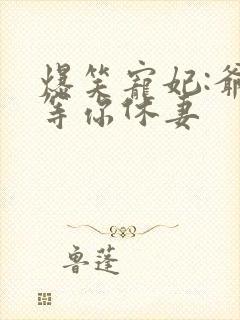 爆笑宠妃:爷
等你休妻
鲁蓬